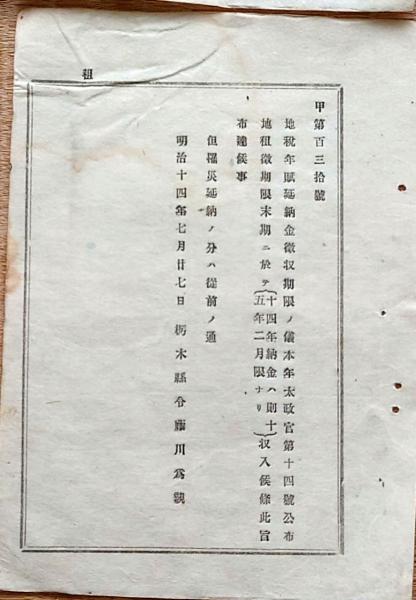 甲第百三拾號
地税年賦延納金徴収期限ノ儀本年太政官第十四號公布
地租徴期限末期ニ於テ(十四年納金ハ則十五年二月限ナリ)収入候條此旨
布達候事
但罹災延納ノ分ハ從前ノ通
明治十四年七月廿七日 栃木縣令藤川爲親
租